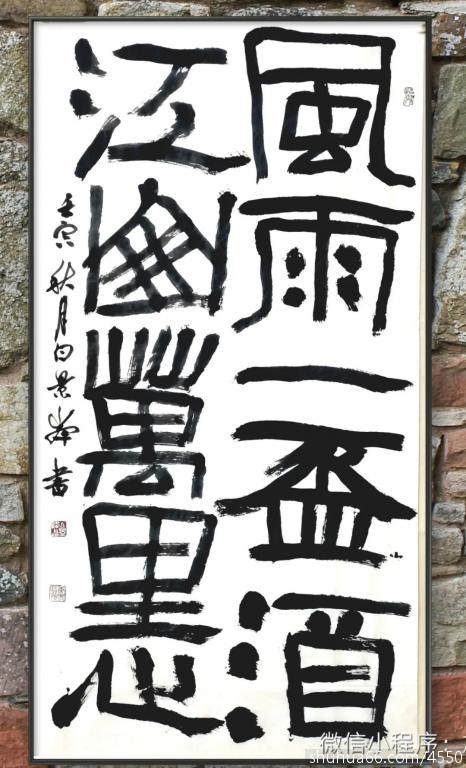 風雨一盃酒
江萬里心
壬寅秋月白景峰書
微信小程序:
shuhua66.com/4550